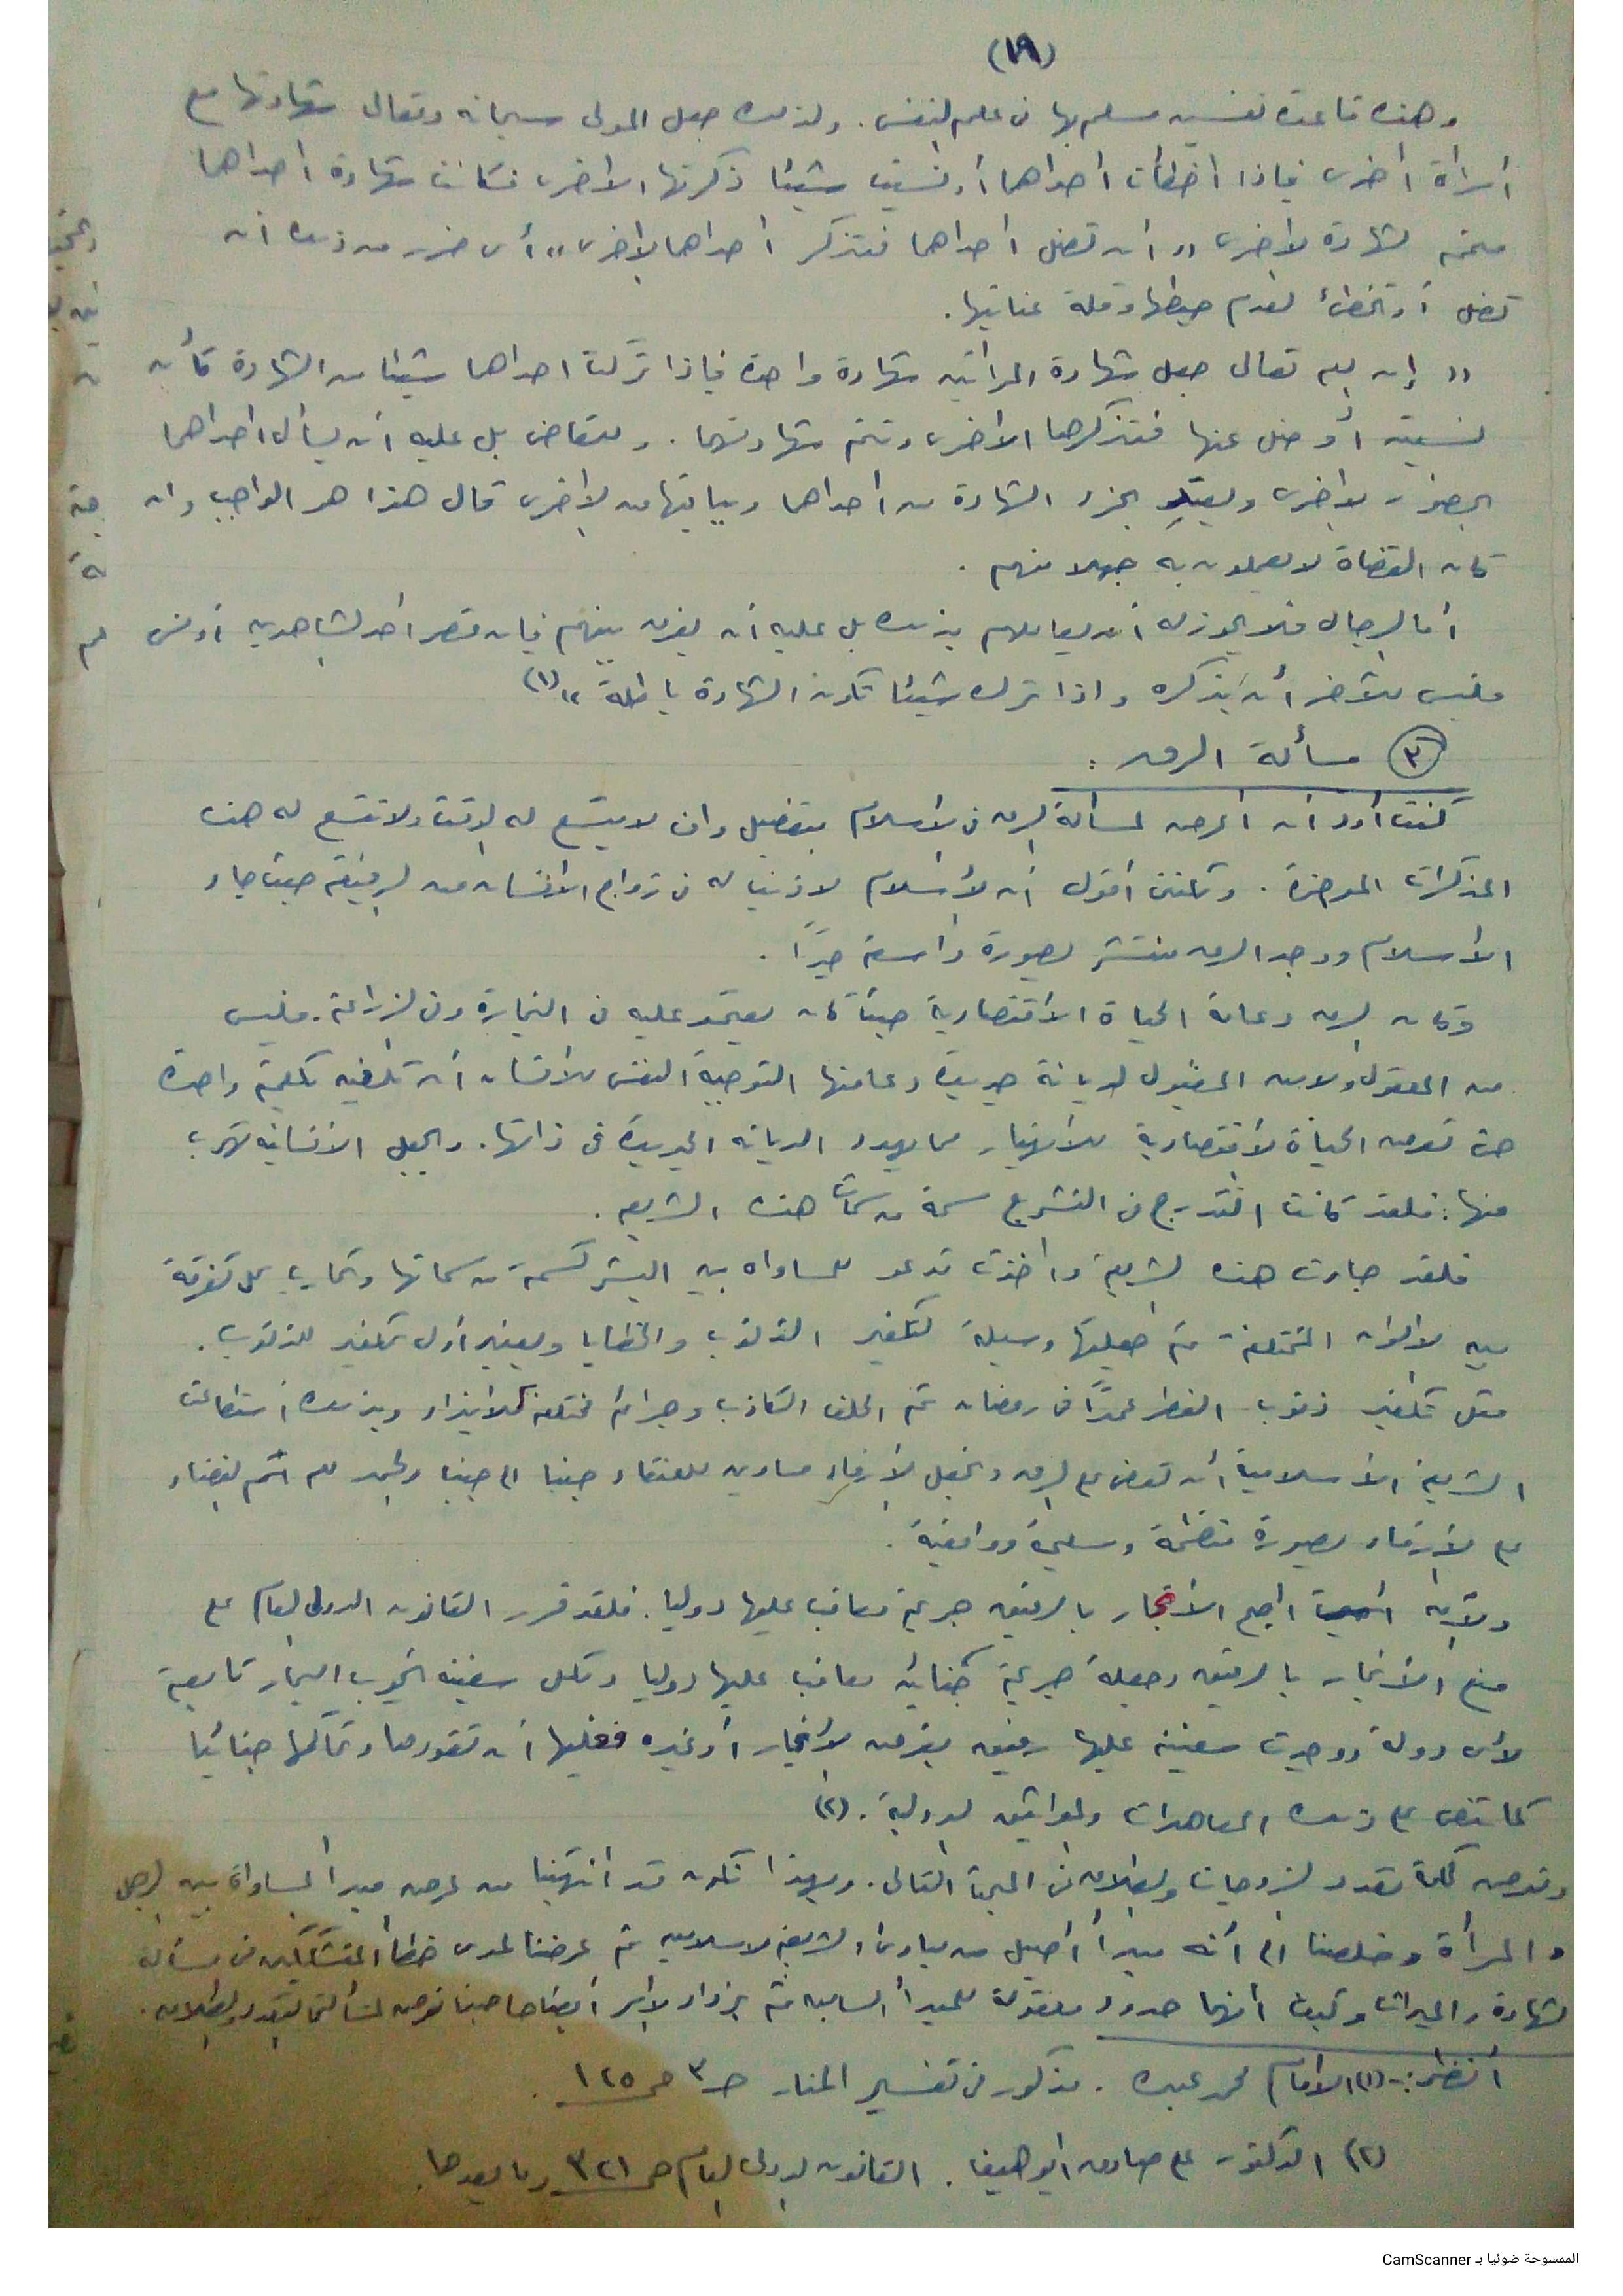 (١٩)
وهذه قاعدة نفسيه مسلم بها فى علم النفس. ولذلك جعل المولى سبحانه وتعالى شهادتها مع
أمرأة أخرى فإذا أخطأت احداهما أو نسيت شيئا ذكرتها الاخرى فكانت شهادة احداهما
متممه لشهادة الاخرى "أن تضل احداهما فتذكر احداهما الاخرى" أى حذر من ذلك ان
تضل أو تخطئ لعدم ضبطها وقلة عنايتها.
" إن الله تعالى جعل شهادة المرأتين شهادة واحدة فإذا تركت احداهما شيئا من الشهادة كأن
نسيته أو ضل عنها فتذكرها الاخرى وتتم شهادتهما. وللقاضى بل عليه أن يسأل احداهما
بحضور الاخرى ويعتد بجزء الشهادة من احداهما وبباقيها من الاخرى قال هذا هو الواجب وان
كان القضاة لا يعملون به جهلا منهم.
أما الرجال فلا يجوز له أن يعاملهم بذلك بل عليه أن يفرق بينهم فإن قصر احد الشاهدين أو نسى
فليس للآخر أن يذكره واذا ترك شيئا تكون الشهادة باطلة " (١)
(٣) مسألة الرق :
كنت أود ان اعرض لمسألة الرق فى الاسلام بتفصيل وان لا يتسع له الوقت ولا تتسع له هذه
المذكرات الموجزة. ولكننى أقول أن الأسلام لا ذنب له فى زواج الانسان من الرقيقه حيث جاء
الاسلام ووجد الرق منتشر بصورة واسعه جدًا.
وكان الرق دعامة الحياة الأقتصادية حيث كان يعتمد عليه فى التجارة وفى الزراعة. فليس
من المعقول ولا من المقبول لديانة جديدة دعامتها التوجيه النفسى للانسان أن تلغيه بكلمة واحدة
حتى تعرض الحياة الأقتصادية للأنهيار مما يهدد الديانه الجديدة فى ذاتها. ويجعل الأنسانيه تهرب
منها: فلقد كانت التدرج فى التشريع سمة من سمات هذه الشريعه.
فلقد جاءت هذه الشريعة وأخذت تدعو للمساواه بين البشر كسمة من سماتها وتحارب كل تفرقة
بين الالوان المختلفة ثم جعلتها وسيلة لتكفير الذنوب والخطايا ويعتبر أول تكفير للذنوب.
مثل تكفير ذنوب الفطر عمدًا فى رمضان ثم الحلف الكاذب وجرائم مختلفة كالايذاء وبذلك أستطاعت
الشريعة الأسلامية أن تقضى على الرق وتجعل الأرقاء مساوين للعتقاء جنبا الى جنب والحمد لله تم القضاء
على الأرقاء بصورة منظمة وسليمة وواقعية.
ولأنه اصبح الأتجار بالرقيق جريمة معاقب عليها دوليا. فلقد قرر القانون الدولى العام على
منع الأتجار بالرقيق وجعله جريمة جنائية معاقب عليها دوليا ولكل سفينه تجوب البحار تابعة
لأى دولة ووجدت سفينة عليها رقيق بغرض الأتجار أو غيره فعليها أن تقودها وتحاكمها جنائيا
كما تنص على ذلك المعاهدات والمواثيق الدولية. (٢)
وتعرض كلمة تعدد الزوجات والطلاق فى المبحث التالى. وبهذا نكون قد انتهينا من عرض مبدأ المساواة بين الرجل
والمرأة وخلصنا الى أنه مبدأ أصيل من مبادئ الشريعه الاسلاميه ثم عرضنا لمدى خطأ المتشككين فى مسألة
الشهادة والميراث وكيف أنهما حدود للمبدأ السابق ثم يزداد الامر أيضاحا حينما نعرض لمسألتى التعدد والطلاق.
أنظر:- (١) الامام محمد عبده. مذكور فى تفسير المنار حـ٣ صـ ١٢٥.
(٢) الدكتور على صادق ابو هيف. القانون الدولى العام صـ ٣٢١ وما بعدها.
الممسوحة ضوئيا بـ CamScanner